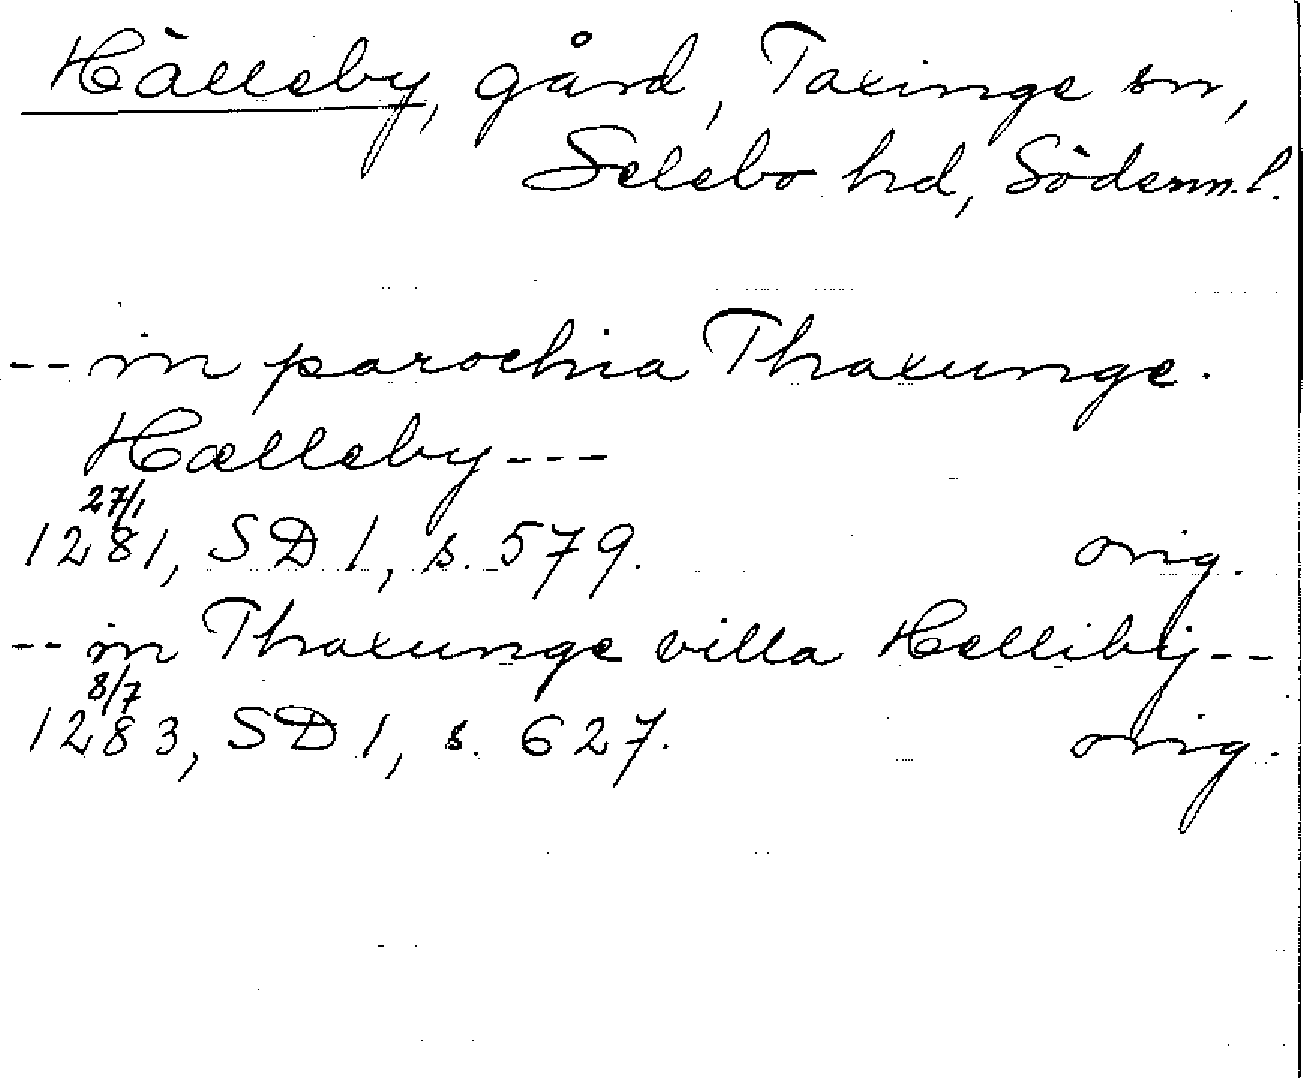 Hälleby, gård, Taxinge sn,
Selebo hd, Söderm.l.
-- in parochia Thaxunge.
Hælleby ---
27/1
1281, SD 1, s. 579. orig.
-- in Thaxunge villa Hellibij --
8/7
1283, SD 1, s. 627. orig.